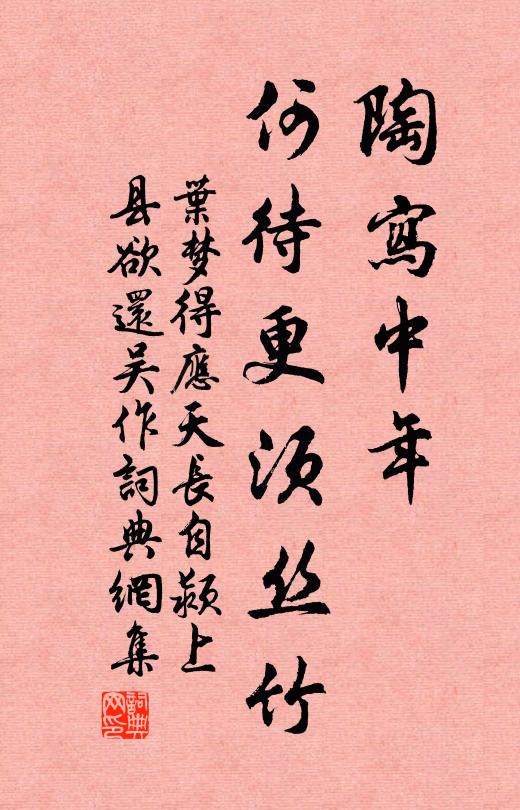 陶寫中年
何待更须丝竹
葉梦得應天長自颍上
县欲還吴作詞典網集
詞典
网印